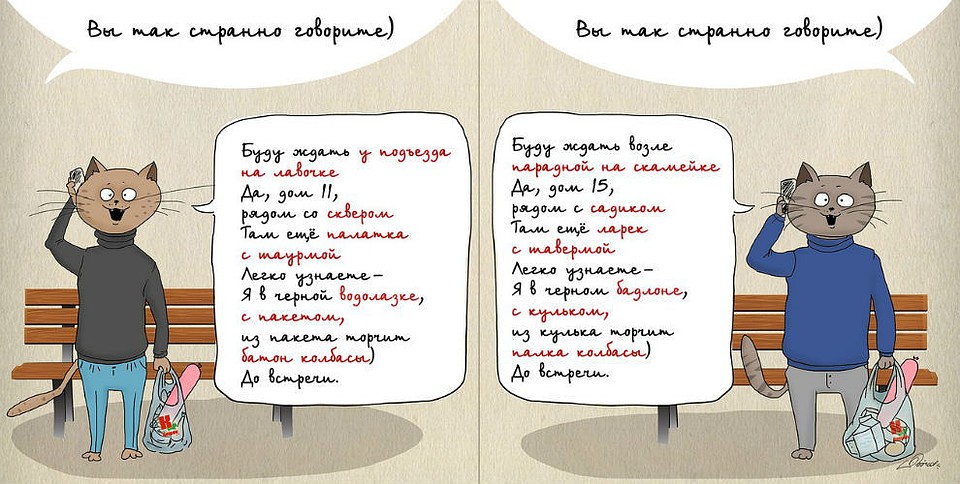 Вы так странно говорите)
Буду ждать у подъезда
на лавочке
Да, дом 11,
рядом со сквером
Там ещё палатка
с шаурмой
Легко узнаете –
Я в черной водолазке,
с пакетом,
из пакета торчит
батон колбасы)
До встречи.
Вы так странно говорите)
Буду ждать возле
парадной на скамейке
Да, дом 15,
рядом с садиком
Там ещё ларек
с шавермой
Легко узнаете –
Я в черном бадлоне,
с кульком,
из кулька торчит
палка колбасы)
До встречи.